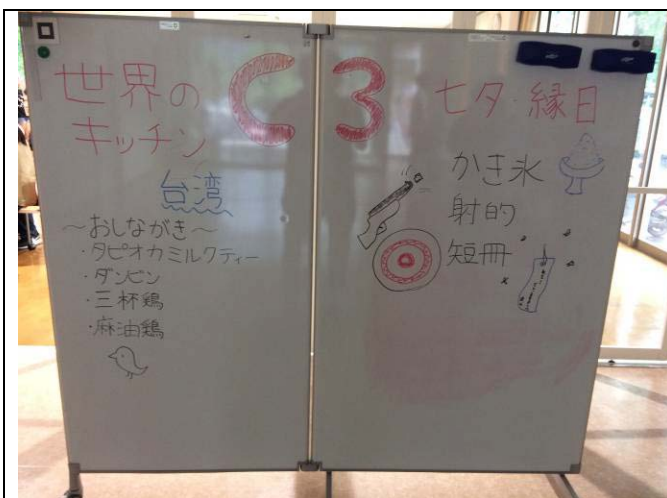 世界の
キッチン
C3
七夕・縁日
台湾
〜おしながき〜
・タピオカミルクティー
・ダンピン
・三杯鶏
・麻油鶏
かき氷
射的
短冊